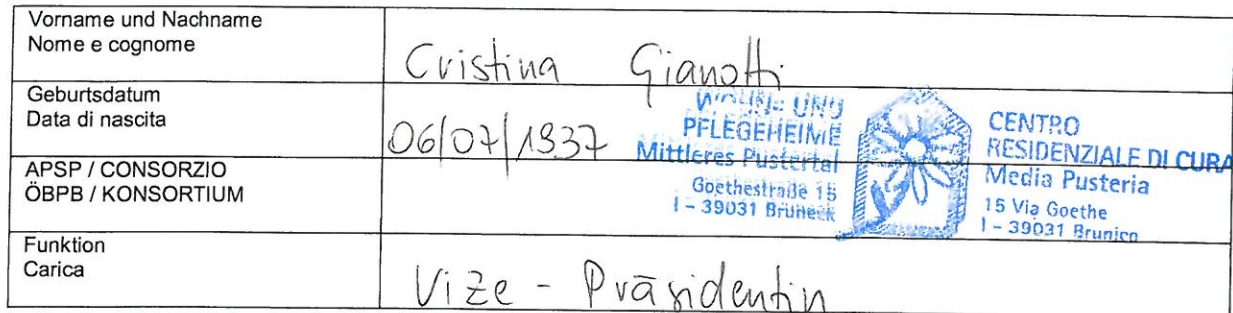 Vorname und Nachname
Nome e cognome
Cristina Gianotti
Geburtsdatum
Data di nascita
06/07/1937
APSP / CONSORZIO
ÖBPB / KONSORTIUM
WOHN- UND
PFLEGEHEIME
Mittleres Pustertal
Goethestraße 15
I - 39031 Bruneck
CENTRO
RESIDENZIALE DI CURA
Media Pusteria
15 Via Goethe
I - 39031 Brunico
Funktion
Carica
Vize - Präsidentin